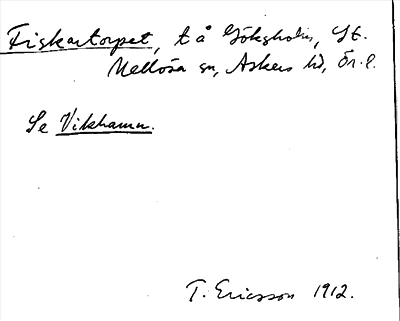 Fiskartorpet, t å Göksholm, St.
Mellösa sn, Askers hd, Ör. l.
Se Vikhamn.
T. Ericsson 1912.